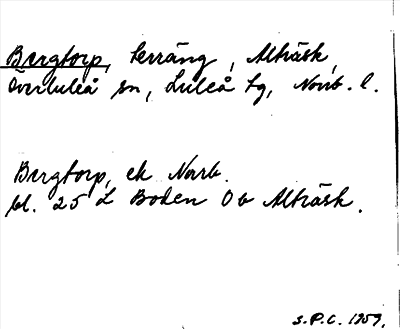 Bergtorp, terräng, Alträsk,
Överluleå sn, Luleå tg, Norrb. l.
Bergtorp, ek Norrb.
bl. 25 L Boden Ob Alträsk.
S.P.C. 1959.